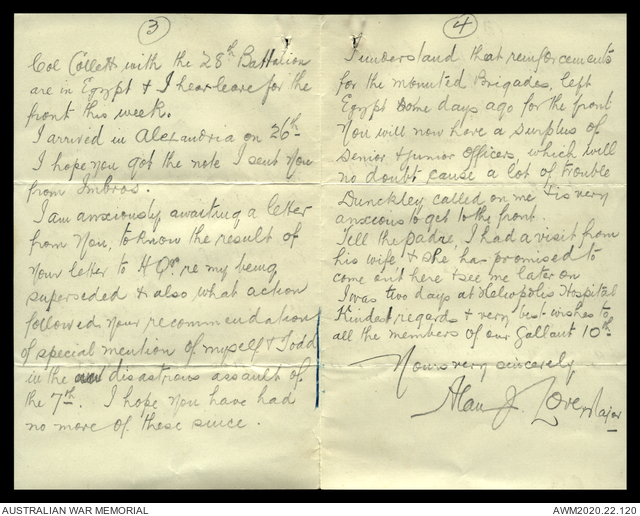 3
Col Collett with the 28th Battalion
are in Egypt & I hear leave for the
front this week.
I arrived in Alexandria on 26th
I hope you got the note I sent you
from Imbros.
I am anxiously awaiting a letter
from you, to know the result of
your letter to HQrs re my being
superseded & also what action
followed your recommendation
of special mention of myself & Todd
in the disastrous assault of
the 7th. I hope you have had
no more of these since.
4
I understand that reinforcements
for the mounted Brigades, left
Egypt some days ago for the front
You will now have a surplus of
Senior & junior Officers, which will
no doubt cause a lot of trouble
Dunckley called on me & is very
anxious to get to the front.
Tell the padre, I had a visit from
his wife & she has promised to
come out here & see me later on
I was two days at Heliopolis Hospital
Kindest regards & very best wishes to
all the members of our Gallant 10th
Yours very sincerely
Alan J. Love Major
AUSTRALIAN WAR MEMORIAL
AWM2020.22.120